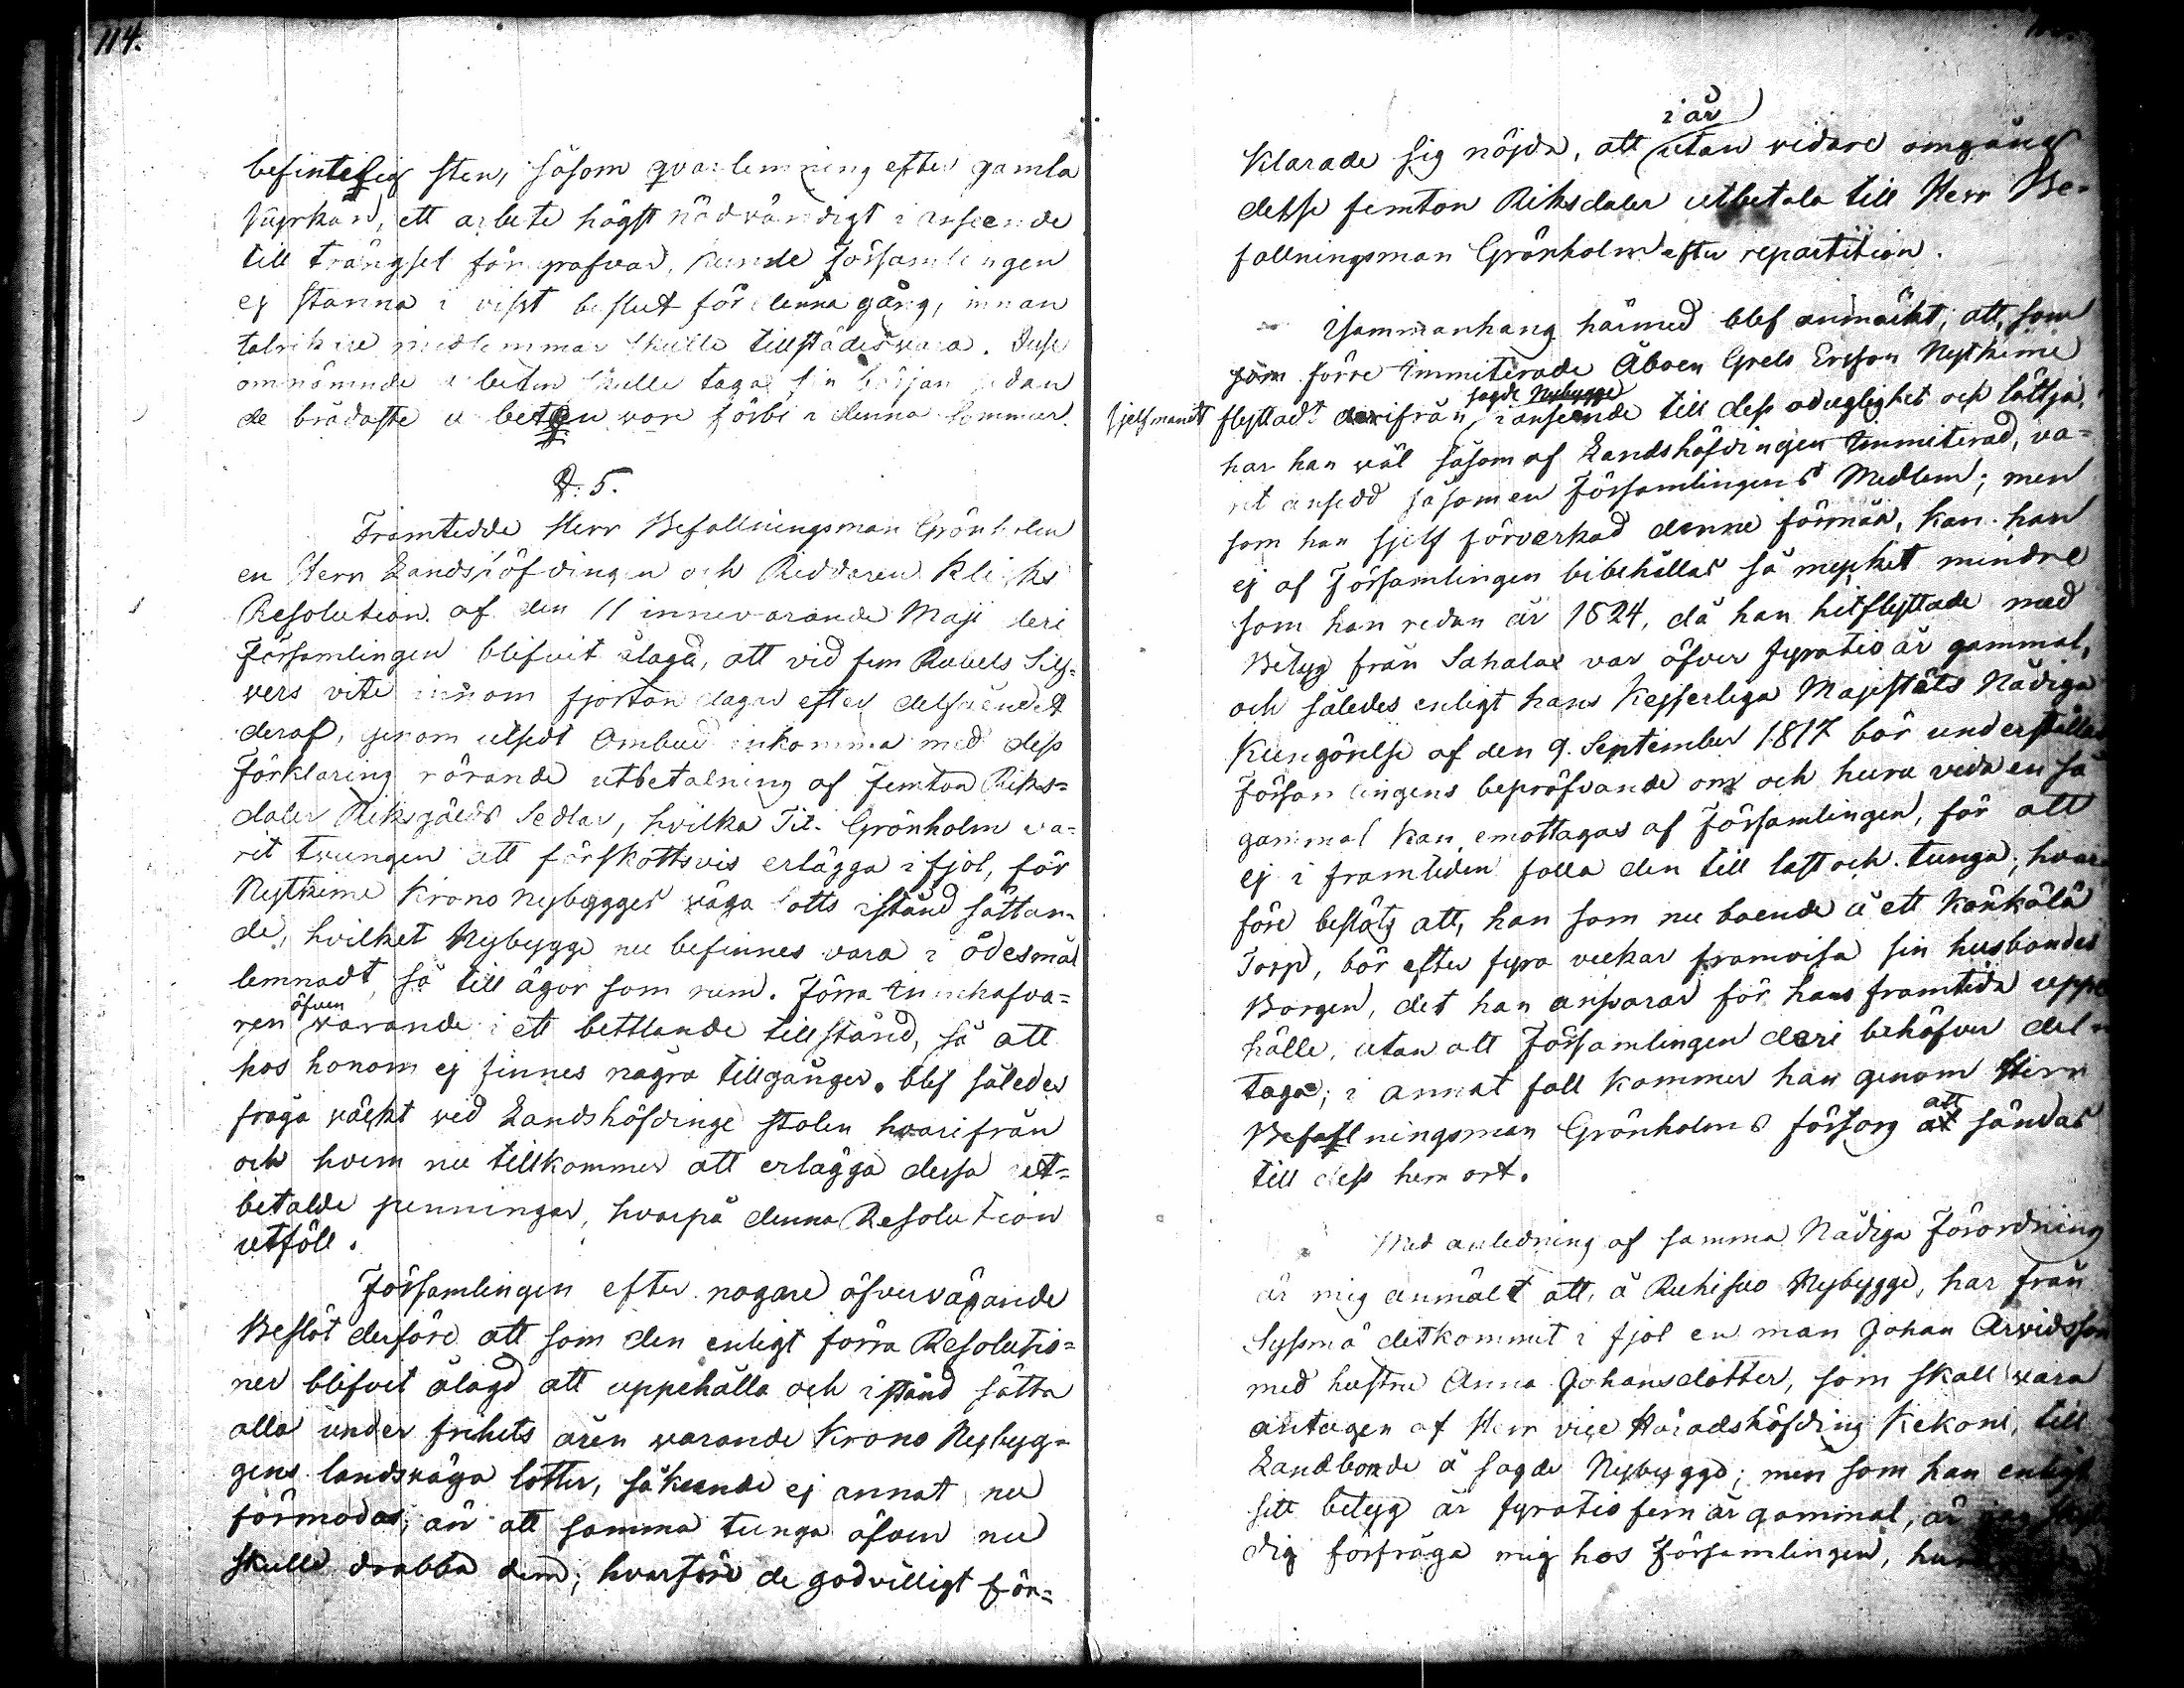 114.
befinteligt sten, såsom qvarlemning efter gamla
kyrkan, ett arbete högst nödvändigt i anseende
till trängsel för grafvar, kunde Församlingen
ej stanna i visst beslut för denna gång, innan
talrikare medlemmar skulle tillstädes vara. Dess
omnämnde arbeten skulle taga sin början sedan
de brådaste arbeten vore förbi i denna sommar.
§. 5.
Framtedde Herr Befallningsman Grönholm
en Herr Landshöfdingen och Riddaren Klicks
Resolution af den 11 innevarande Maji deri
Församlingen blifvit ålagd, att vid fem Rubels Silf=
vers vite innom fjorton dagar efter delfåendet
deraf, genom utsedt Ombud inkomma med dess
Förklaring rörande utbetalning af femton Riks=
daler Riksgälds Sedlar, hvilka Tit. Grönholm va=
rit tvungen att förskottsvis erlägga i fjol, för
Nystheime Krono nybygges väga lotts istånd sättan=
de, hvilket Nybygge nu befinnes vara i ödesmål
lemnadt, så till ägor som rum. Förra innehafva=
ren öfven varande i ett bettlande tillstånd, så att
hos honom ej finnes några tillgånger. blef således
fråga väckt vid Landshöfdinge stolen hvarifrån
och hvem nu tillkommer att erlägga dessa ut=
betalde penningar, hvarpå denna Resolution
utföll.
Församlingen efter nogare öfvervägande
Beslöt derföre att som den enligt förra Resolutio=
ner blifvit ålagd att uppehålla och istånd sätta
alla under frihets åren varande Krono Nybyg=
gens landsväga lotter, så kunde ej annat nu
förmodas, än att samma tunga öfven nu
skulle drabba dem; hvarföre de godvilligt för=
klarade sig nöjda, att i år utan vidare omgång
desse femton Riksdaler utbetala till Herr Be=
fallningsman Grönholm efter repartition.
I sammanhang härmed blef anmärkt, att, som
som förre Immiterade Åboen Grels Ersson Nystheime
sjelfmant flyttadt derifrån sagde Nybygge i anseende till dess oduglighet och lättja,
har han väl såsom af Landshöfdingen Immiterad, va=
rit ansedd såsom en Församlingens Medlem; men
som han sjelf förverkad denne förmån, kan han
ej af Församlingen bibehållas så mycket mindre
som han redan år 1824, då han hitflyttade med
Betyg från Sahalax var öfver fyratio år gammal,
och således enligt hans Kejserliga Majestäts Nådiga
Kungörelse af den 9. September 1817 bör underställas
Församlingens bepröfvande om och huru vida en så
gammal kan emottagas af Församlingen, för att
ej i framtiden falla den till last och tunga; hvar=
före beslöts att, han som nu boende å ett Kankala
Torp, bör efter fyra veckar framvisa sin husbondes
Borgen, det han ansvarar för hans framtida uppe
hälle, utan att Församlingen deri behöfver del=
taga; i annat fall kommer han genom Herr
Befallningsman Grönholms försorg att sändas
till dess hem ort.
Med anledning af samma Nådiga Förordning
är mig anmält att, å Ruhisuo Nybygge, har från
Syssmä ditkommit i fjol en man Johan Arvidsson
med hustru Anna Johansdotter, som skall vara
antagen af Herr vice Häradshöfding Kekoni, till
Landbonde å sagde Nybygge; men som han enligt
sitt betyg är fyratio fem år gammal, är
dig förfråga mig hos Församlingen,